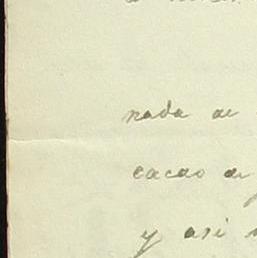 nada de
cacao de
y asi